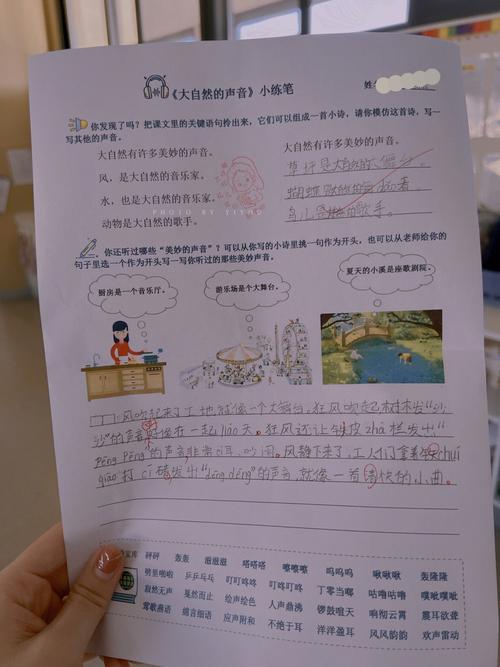 《大自然的声音》小练笔
姓名
你发现了吗?把课文里的关键语句拎出来,它们可以组成一首小诗,请你模仿这首诗,写一
写其他的声音。
大自然有许多美妙的声音。
风,是大自然的音乐家。
水,也是大自然的音乐家。
动物是大自然的歌手。
大自然有许多美妙的声音。
草坪是大自然的大舞台。
鸟儿是
的歌手。
PHOTO BY YIYUO
你还听过哪些“美妙的声音”?可以从你写的小诗里挑一句作开头,也可以从老师给你的
句子里选一个作开头写一写你听过的那些美妙声音。
厨房是一个音乐厅。
游乐场是个大舞台。
夏天的小溪是座歌剧院。
风吹起来了,工地就像一个大舞台,狂风吹起树木发“沙
沙”的声音好像在一起liáo天。狂风还让铁皮zhà栏发出“
pēng pēng”的声音非常cì耳、吵闹。风静下来了,工人们拿着铁chuí
qiāo打cí砖发出“dēng dēng”的声音,就像一首清快的小曲。
宝库
砰砰 轰轰 滋滋滋 嗒嗒嗒 嘭嘭嘭 呜呜呜 啾啾啾 轰隆隆
劈里啪啦 乒乒乓乓 叮叮咚咚 叮咚叮咚 丁零当啷 咕噜咕噜 噗呲噗呲
寂然无声 戛然而止 绘声绘色 人声鼎沸 锣鼓喧天 响彻云霄 震耳欲聋
莺歌燕语 细言细语 应声附和 不绝于耳 洋洋盈耳 风风韵韵 欢声雷动